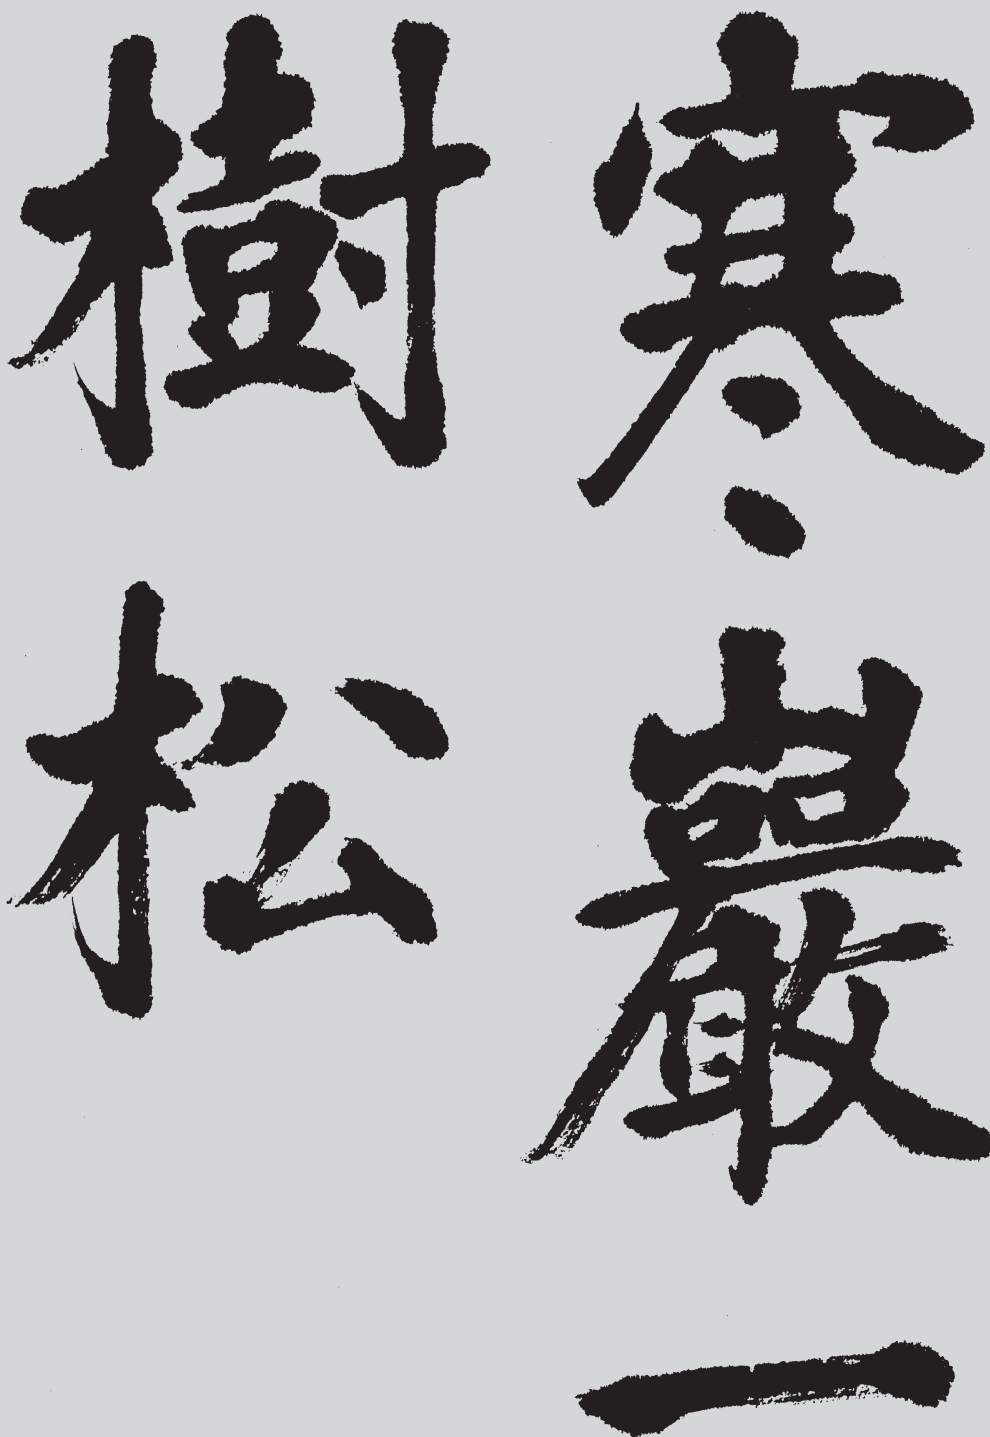 寒巖一
樹松